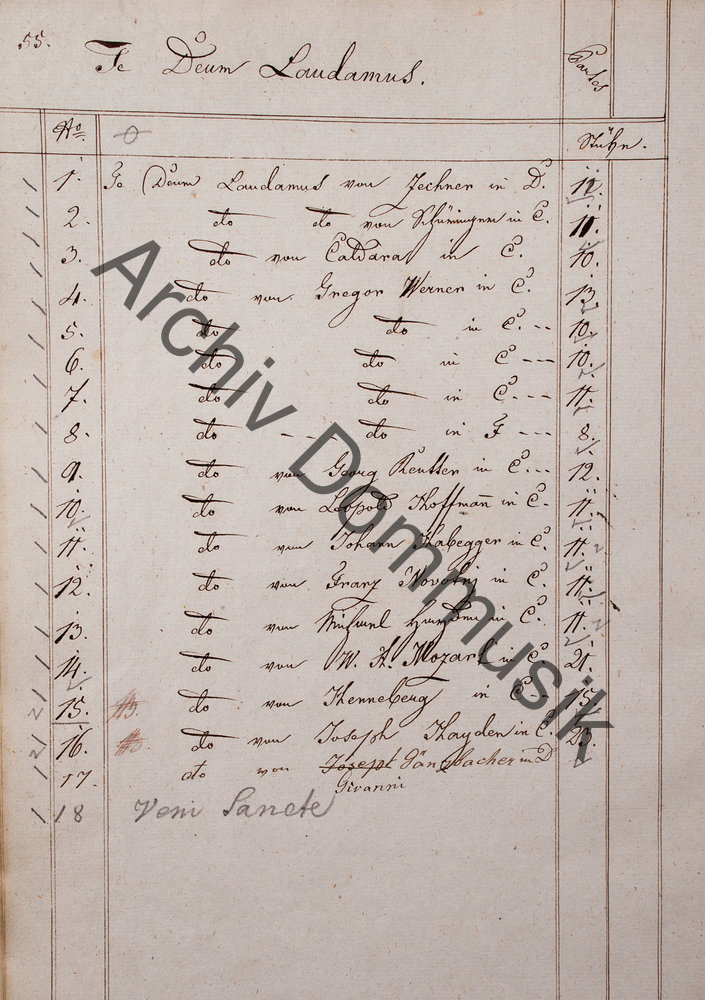 55.
Te Deum Laudamus.
Partes
No.
Stühn.
1. Te Deum Laudamus von Zechner in D. 12.
2. do do von Schüringer in C. 11.
3. do von Caldara in C. 10.
4. do von Gregor Werner in C. 13.
5. do do in C. -- 10.
6. do do in C --- 10.
7. do do in C. --- 11.
8. do --- do in F --- 8.
9. do von Georg Reutter in C. -- 12.
10. do von Leopold Hoffmañ in C. 11.
11. do von Johann Habegger in C. 11.
12. do von Franz Novotni in C. 11.
13. do von Michael Hayden in C. 11.
14. do von W. A. Mozart in C. 21.
15. do von Henneberg in C -- 15.
16. do von Joseph Hayden in C. 23.
17. do von Joseph Gänsbacher in D
Giovanni
18 Veni Sancte
Archiv Dommusik